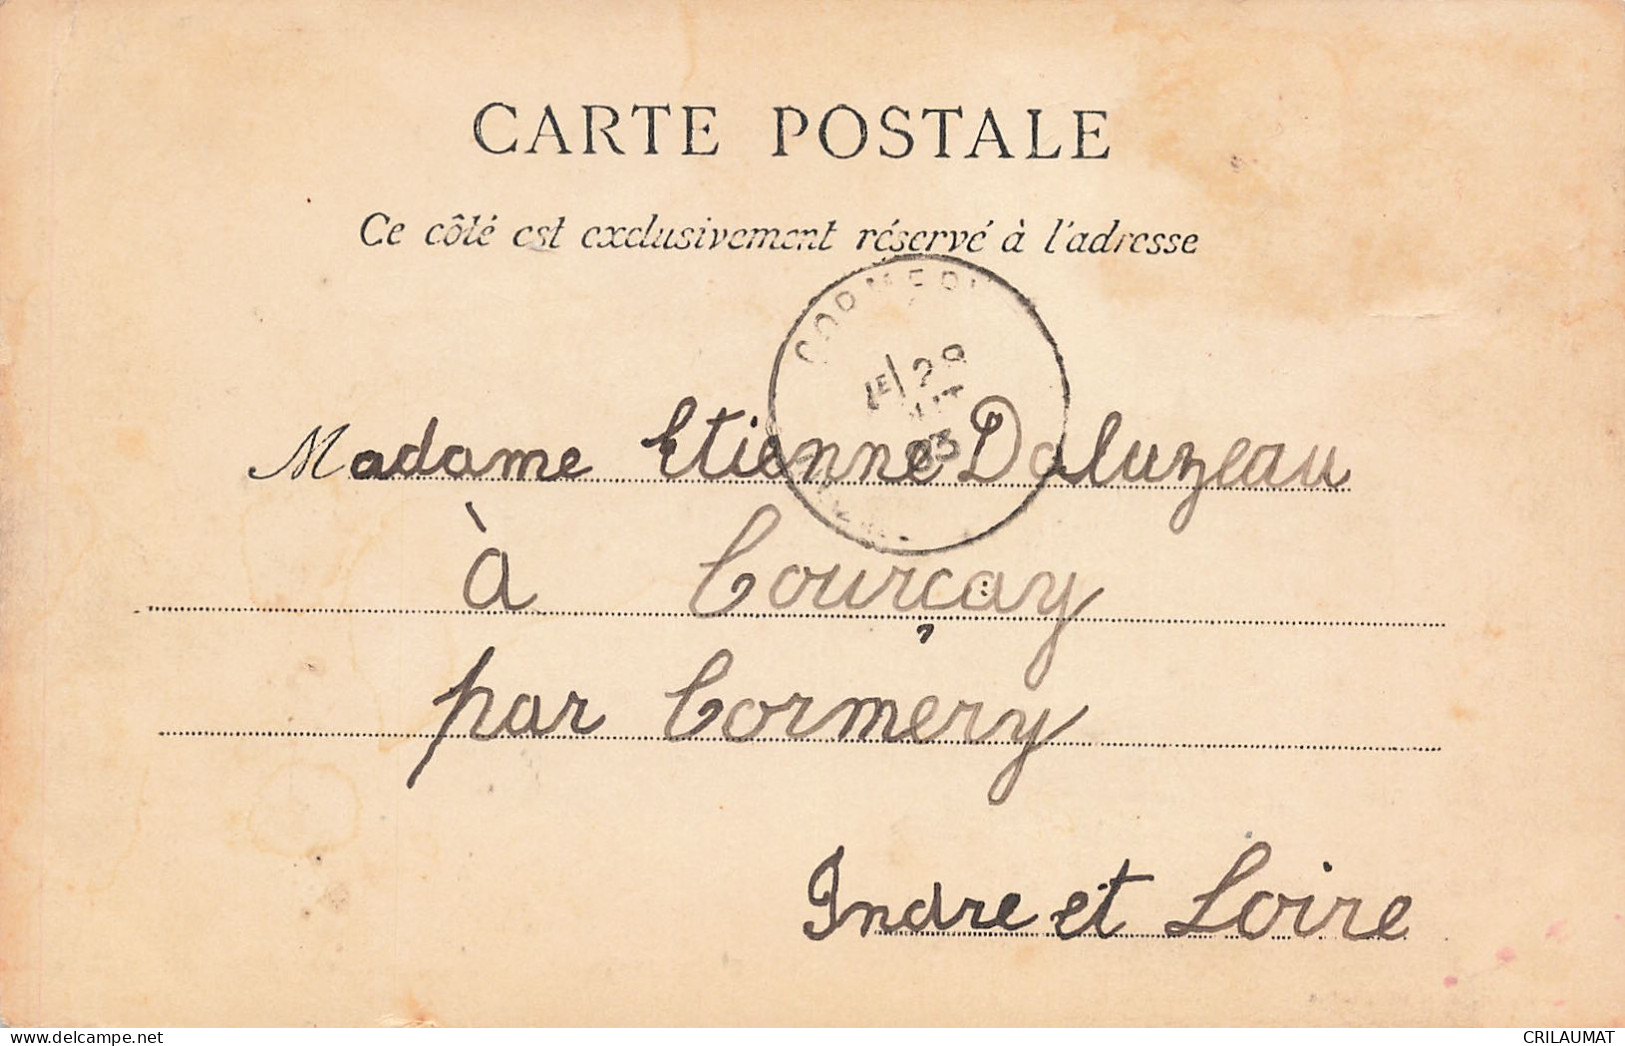 CARTE POSTALE
Ce côté est exclusivement réservé à l'adresse
CORMERY
LE 28
03
Madame Etienne Daluzeau
à Courçay
par Cormery
Indre et Loire
www.delcampe.net
CRILAUMAT